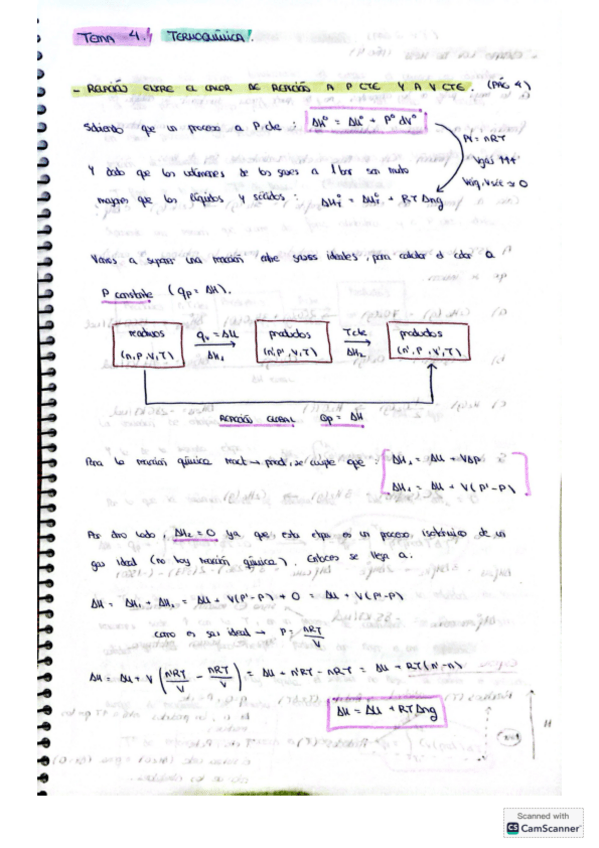 TEMA 4. TERMOQUÍMICA.
- RELACIÓN ENTRE EL CALOR DE REACCIÓN A P CTE Y A V CTE. (PÁG 4)
Sabiendo que un proceso a P. cte : ΔH° = ΔU° + P° dV°
PV = nRT
Vgas ↑↑↑
Vliq, Vsól ≈ 0
Y dado que los volúmenes de los gases a 1 bar son mucho
mayores que los líquidos y sólidos : ΔH°ᵢ = ΔU°ᵢ + RTΔng
Vamos a suponer una reacción entre gases ideales, para calcular el calor a
P constante (qp = ΔH).
reactivos (n, P, V, T) qv = ΔU ΔH₁ productos (n', P', V, T) T cte ΔH₂ productos (n', P, V', T)
REACCIÓN GLOBAL Qp = ΔH
Para la reacción química react → prod, se cumple que : ΔH₁ = ΔU + VΔP
ΔH₁ = ΔU + V(P'-P)
Por otro lado, ΔH₂ = 0 ya que esta etapa es un proceso isotérmico de un
gas ideal (no hay reacción química). Entonces se llega a.
ΔH = ΔH₁ + ΔH₂ = ΔU + V(P'-P) + 0 = ΔU + V(P'-P)
como es gas ideal → P = nRT/V
ΔH = ΔU + V (n'RT/V - nRT/V) = ΔU + n'RT - nRT = ΔU + RT(n'-n)
ΔH = ΔU + RTΔng
Scanned with
CS CamScanner